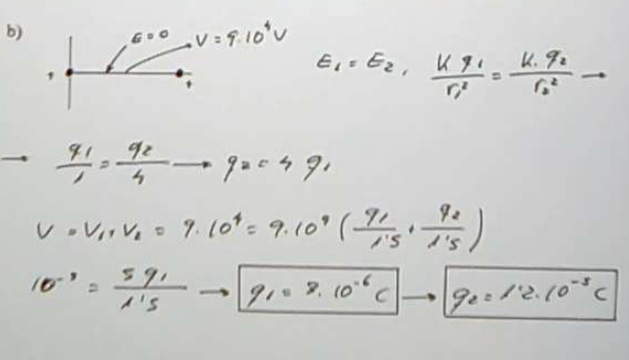 b) E=0 V=9.10⁴V
E₁ = E₂, K q₁/r₁² = K. q₂/r₂² →
→ q₁/1 = q₂/4 → q₂ = 4 q₁
V = V₁ + V₂ = 9.10⁴ = 9.10⁹ (q₁/1'5 + q₂/1'5)
10⁻⁵ = 5 q₁/1'5 → q₁ = 3.10⁻⁶ C → q₂ = 1'2.10⁻⁵ C